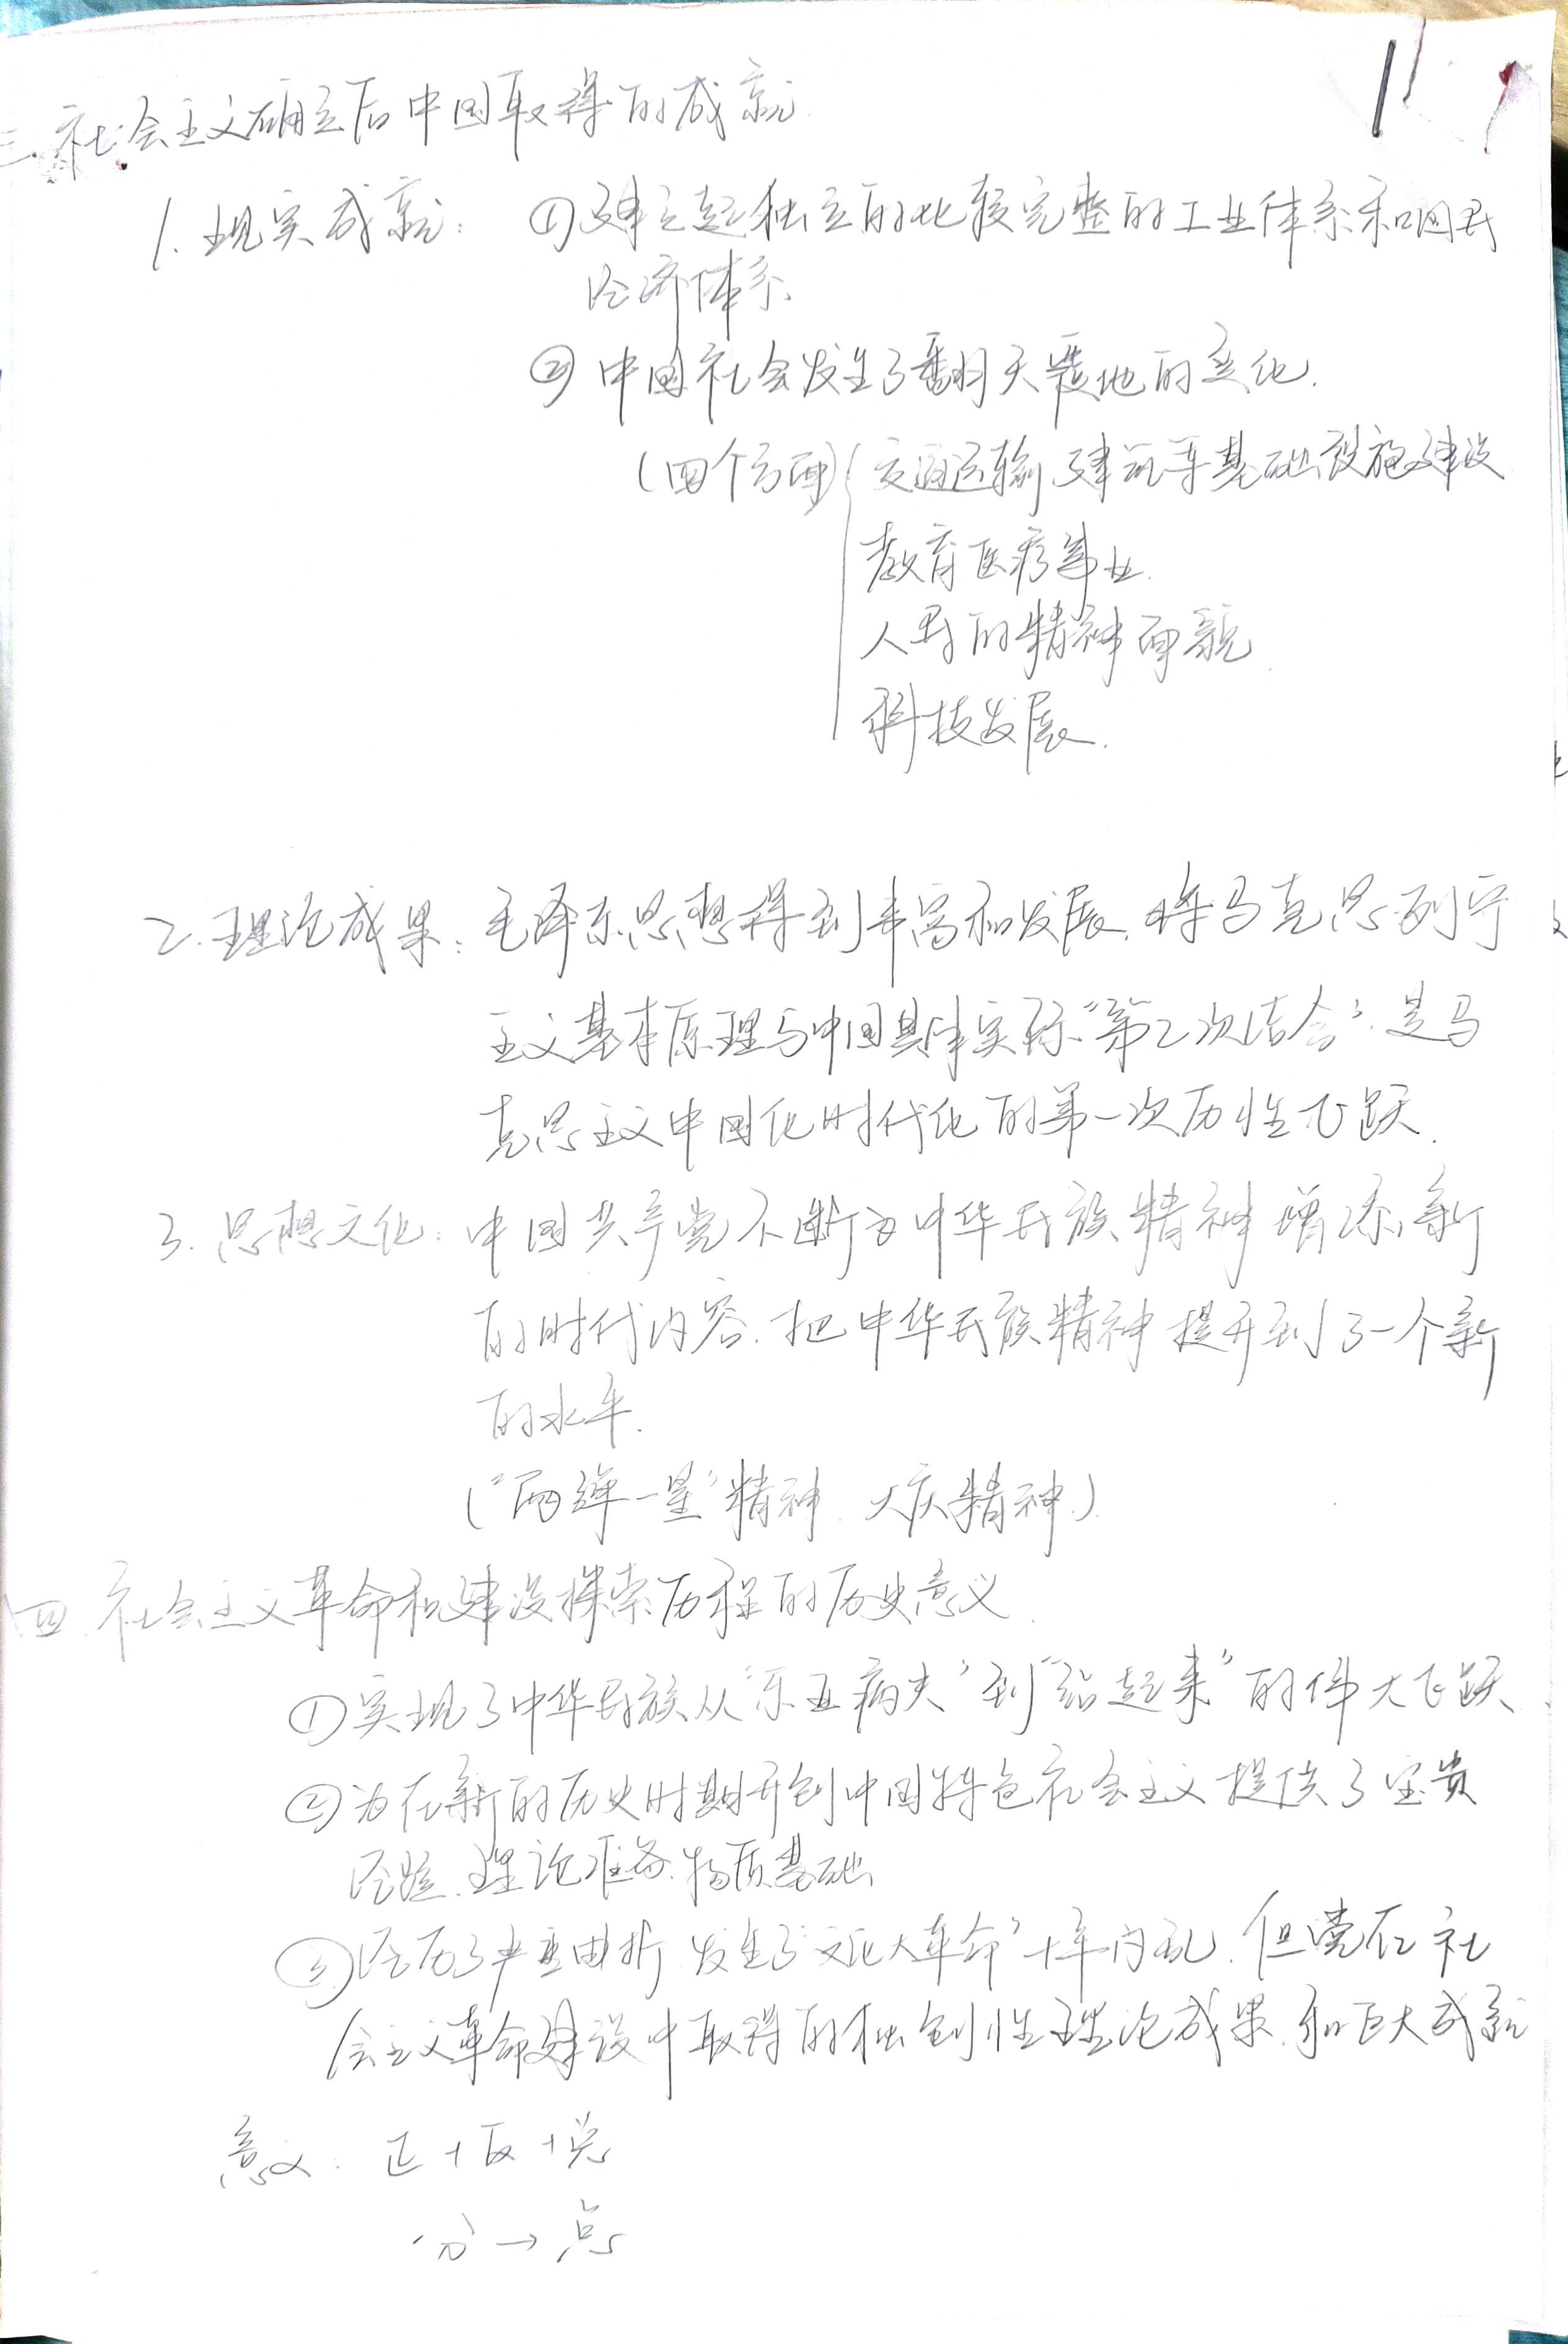 三.社会主义确立后中国取得的成就
1.现实成就: ①建立起独立的比较完整的工业体系和国民
经济体系.
② 中国社会发生了翻天覆地的变化.
(四个方面) 交通运输.建筑等基础设施建设
教育医疗事业.
人民的精神面貌.
科技发展.
2.理论成果: 毛泽东思想得到丰富和发展.将马克思列宁
主义基本原理与中国具体实际“第二次结合”.是马
克思主义中国化时代化的第一次历性飞跃.
3.思想文化: 中国共产党不断为中华民族精神增添新
的时代内容.把中华民族精神提升到了一个新
的水平.
(“两弹一星”精神.大庆精神.)
四.社会主义革命和建设探索历程的历史意义.
①实现了中华民族从“东亚病夫”到“站起来”的伟大飞跃.
②为在新的历史时期开创中国特色社会主义提供了宝贵
经验.理论准备.物质基础
③经历了严重曲折.发生了“文化大革命”十年内乱.但党在社
会主义革命建设中取得的独创性理论成果.和巨大成就
意义: 正+反+总
分→总